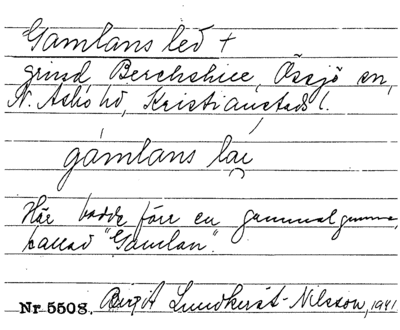 Gamlans led +
grind, Berchshill, Össjö sn,
N. Åsbo hd, Kristianstads l.
gámlans lae
Här bodde förr en gammal gumma,
kallad "Gamlan".
Nr 5508. Birgit Lundkvist-Nilsson, 1941